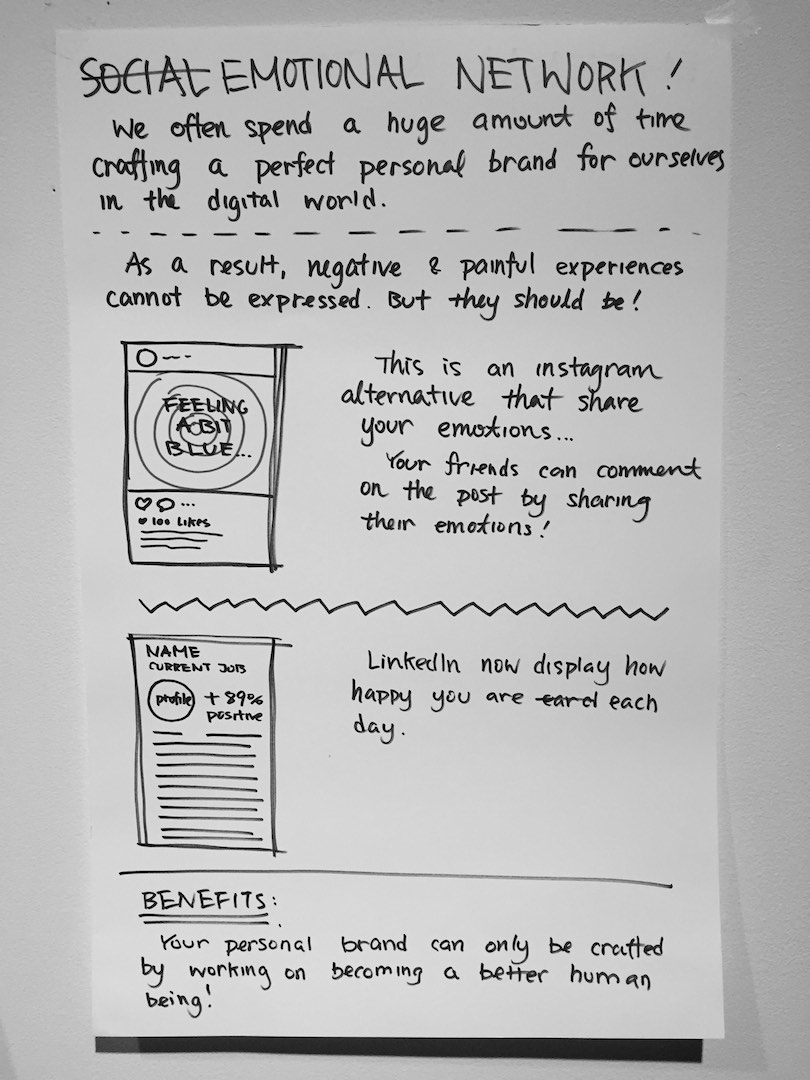 SOCIAL EMOTIONAL NETWORK!
We often spend a huge amount of time
crafting a perfect personal brand for ourselves
in the digital world.
As a result, negative & painful experiences
cannot be expressed. But they should be!
FEELING
A BIT
BLUE...
100 Likes
This is an instagram
alternative that share
your emotions...
Your friends can comment
on the post by sharing
their emotions!
NAME
CURRENT JOB
profile
+89%
positive
LinkedIn now display how
happy you are each
day.
BENEFITS:
Your personal brand can only be crafted
by working on becoming a better human
being!